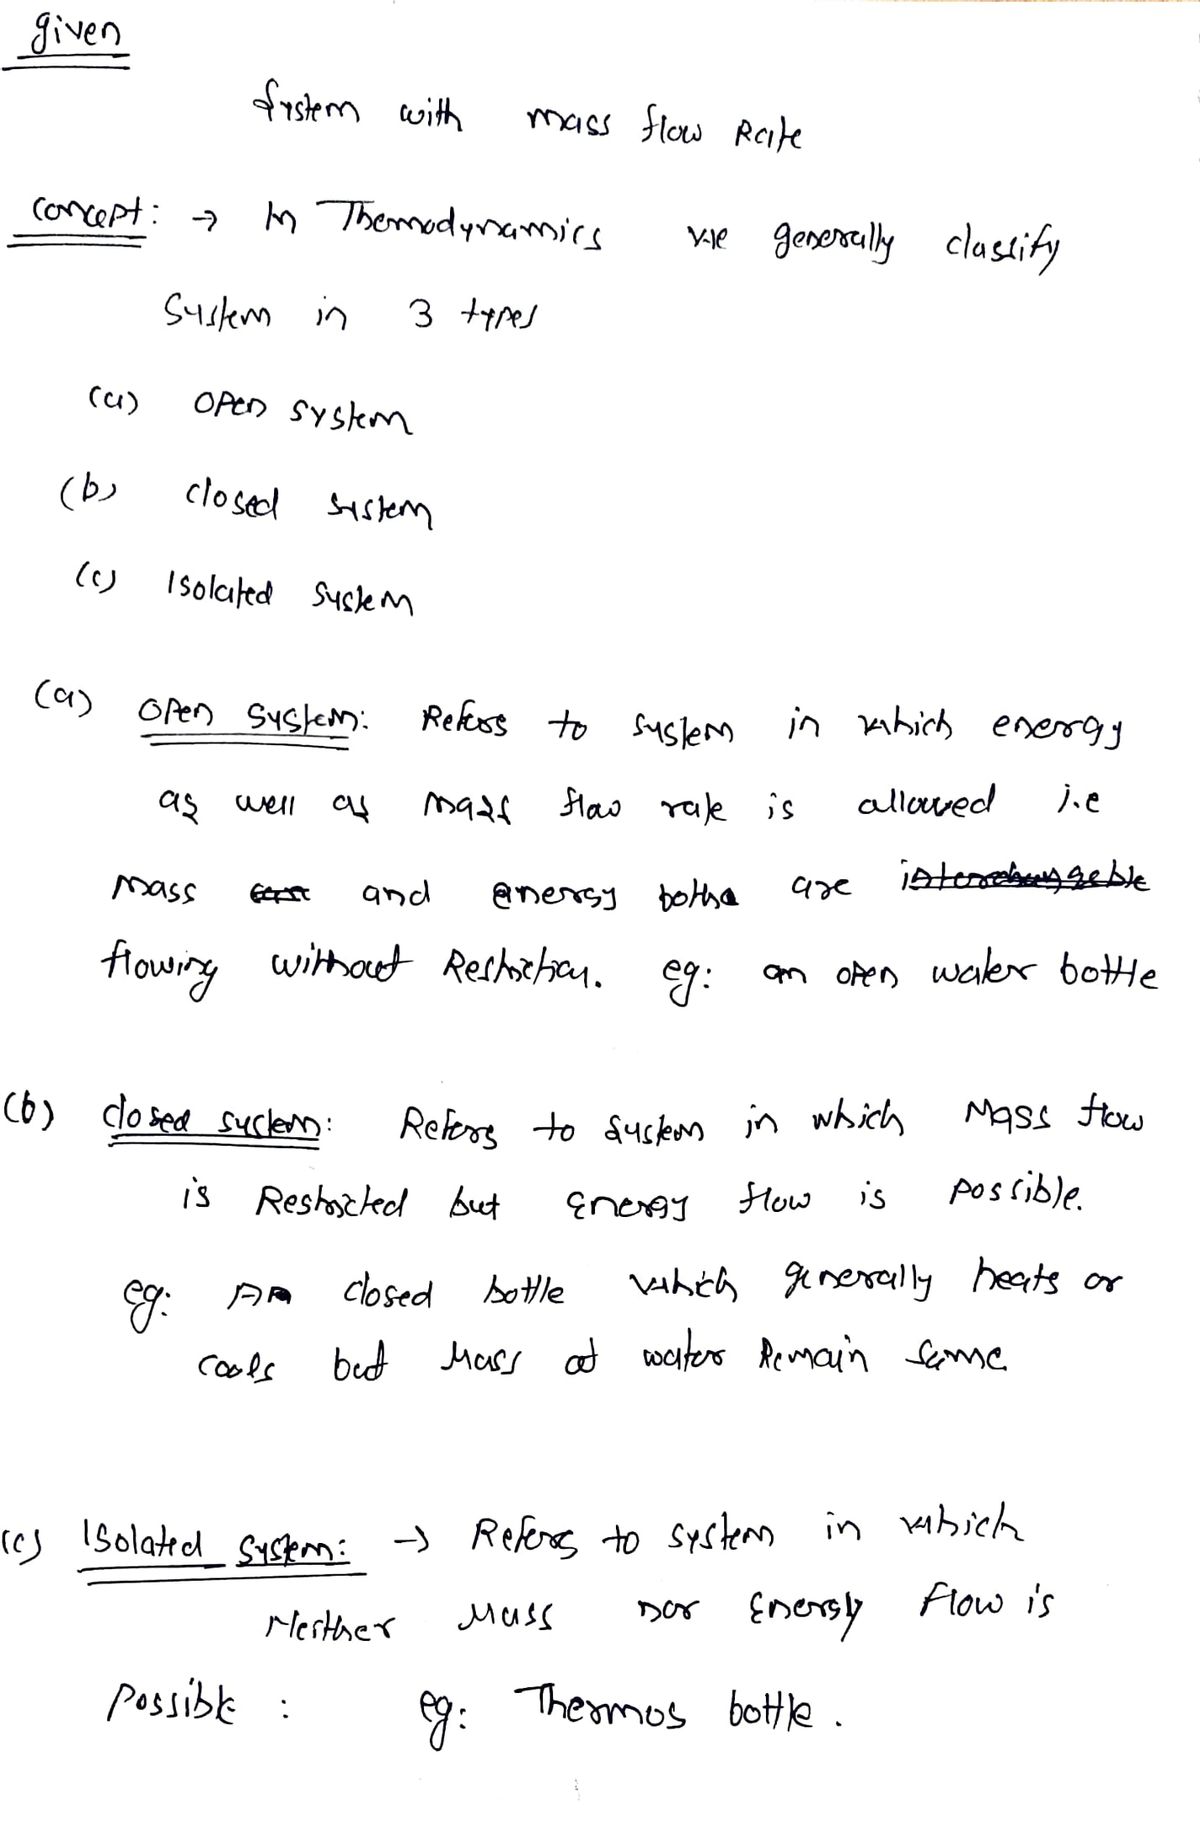 given
System with mass flow Rate
concept: → In Themodynamics we generally classify
System in 3 types
(a) open system
(b) closed system
(c) Isolated system
(a) open system: Refers to system in which energy
as well as mass flow rate is allowed i.e
mass and energy both are interchangeble
flowing without Restriction. eg: an open water bottle
(b) closed system: Refers to system in which Mass flow
is Restricted but Energy flow is possible.
eg: A closed bottle which generally heats or
cools but Mass of water Remain same
(c) Isolated system: → Refers to system in which
Neither Mass nor Energy flow is
possible : eg: Thermos bottle.